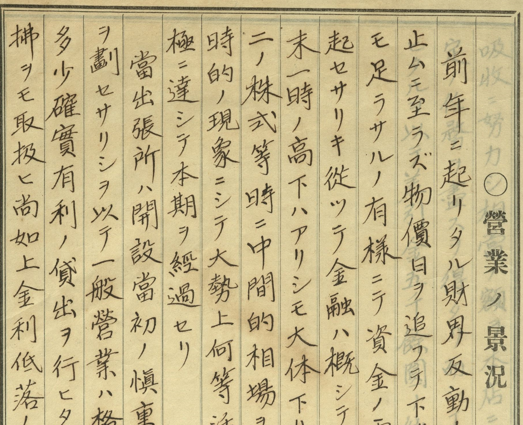 ○營業ノ景況
前年ニ起リタル財界反動ノ
止ムニ至ラズ物價日ヲ追フテ下
モ足ラサルノ有樣ニテ資金ノ
起セサリキ從ツテ金融ハ概シテ
末一時ノ高下ハアリシモ大体下
二ノ株式等時ニ中間的相場ヲ
時的ノ現象ニシテ大勢上何等
極ニ達シテ本期ヲ經過セリ
當出張所ハ開設當初ノ愼重
ヲ劃セサリシヲ以テ一般營業ハ格
多少確實有利ノ貸出ヲ行ヒタ
拂ヲモ取扱ヒ尚如上金利低落ノ